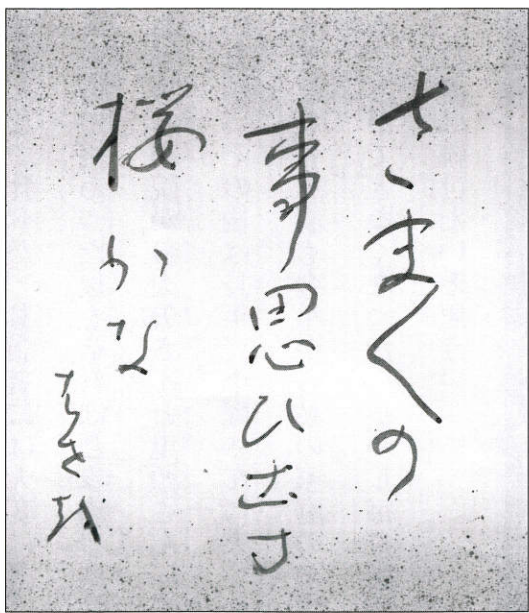 さま〱の
事思ひ出す
桜かな